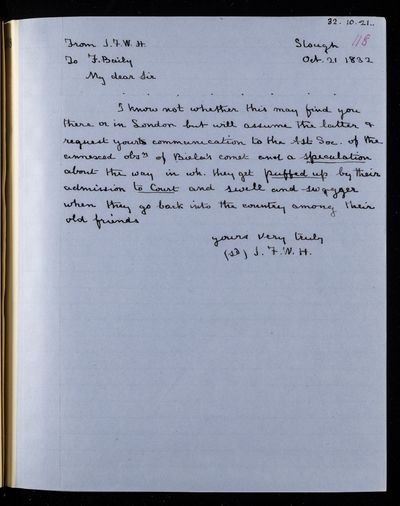 32.10.21..
118
From J.F.W.H. Slough
To F. Baily Oct. 21 1832
My dear Sir
. . . . . . . . .
I know not whether this may find you
there or in London but will assume the latter &
request your communication to the Ast Soc. of the
annexed obsns of Biela's comet and a speculation
about the way in wh. they get puffed up by their
admission to Court and swell and swagger
when they go back into the country among their
old friends
yours very truly
(sd) J.F.W.H.